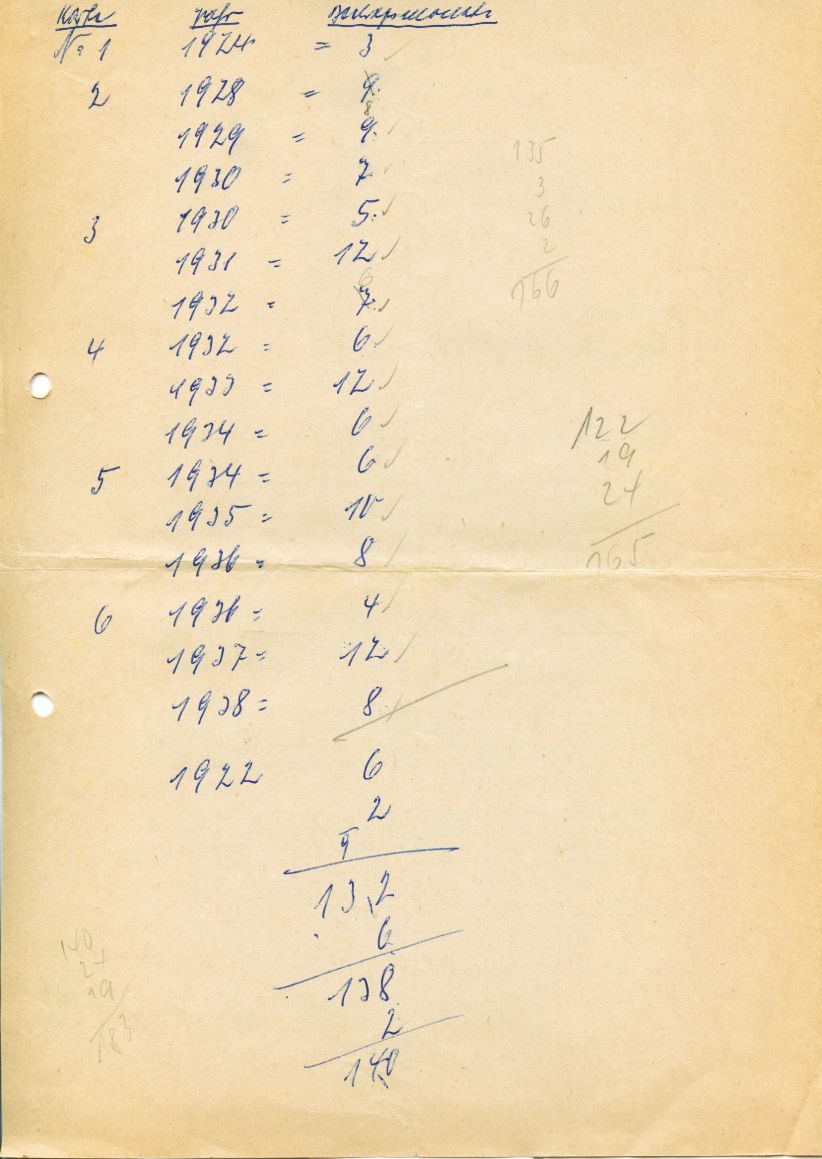 № 1 1924 = 3 ✓
2 1928 = 9
8
1929 = 9 ✓
1930 = 7 ✓
3 1930 = 5 ✓
1931 = 12 ✓
6
1932 = 7 ✓
4 1932 = 6 ✓
1933 = 12 ✓
1934 = 6 ✓
5 1934 = 6 ✓
1935 = 10 ✓
1936 = 8 ✓
6 1936 = 4 ✓
1937 = 12 ✓
1938 = 8 ✓
1922 6
2
9
132
6
138
2
140
135
3
26
2
166
122
19
24
165
140
24
19
183